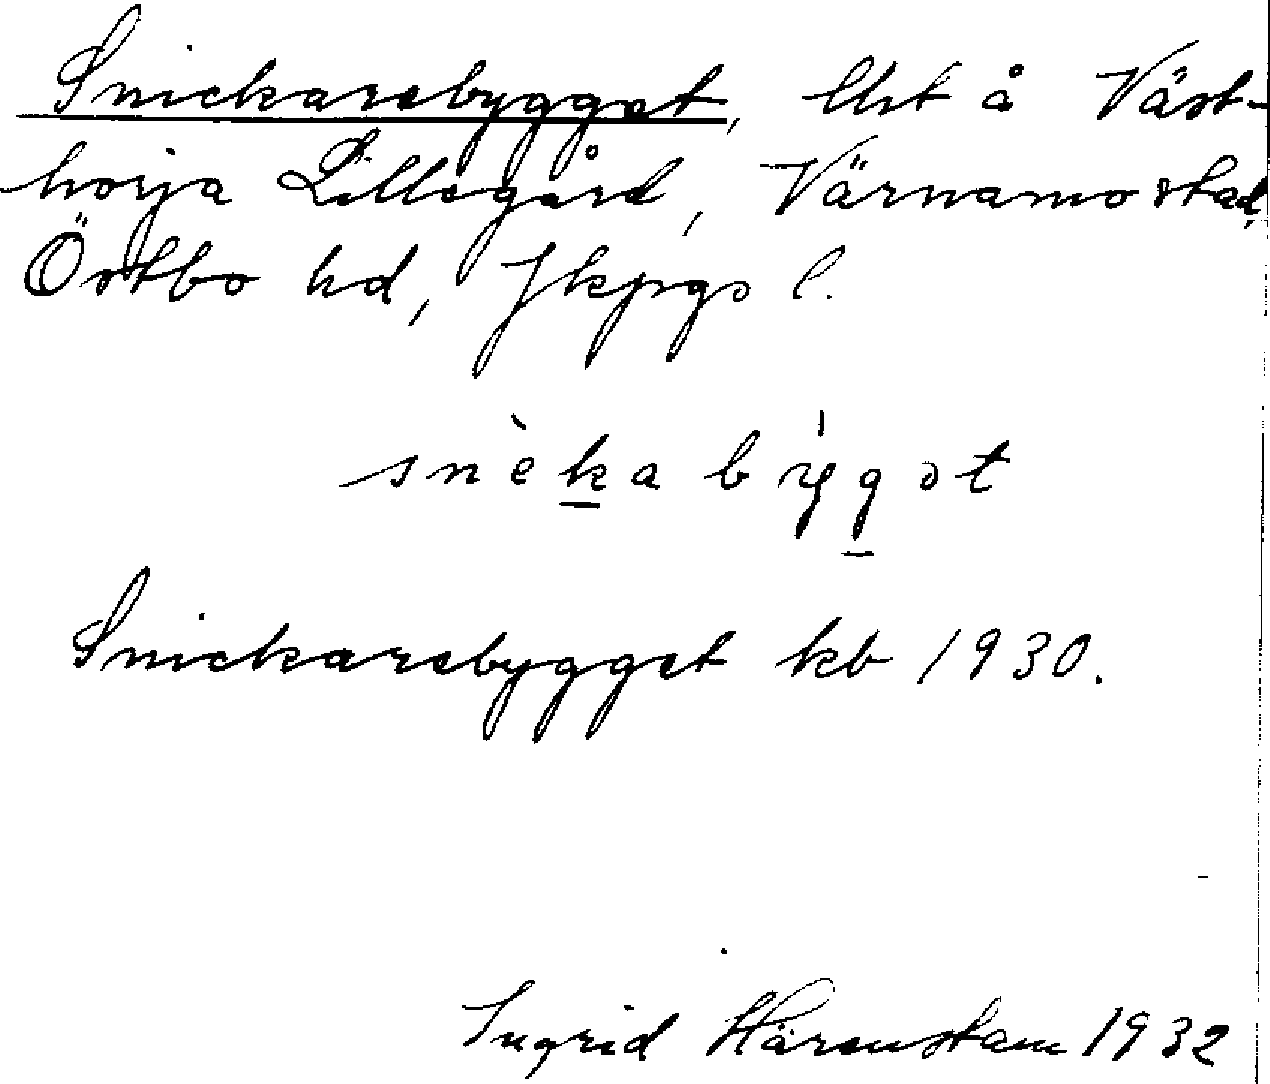 Snickarebygget, lht å Väst-
horja Lillegård, Värnamo stad,
Östbo hd, Jkpgs l.
snèkabýgət
Snickarebygget kb 1930.
Ingrid Härenstam 1932